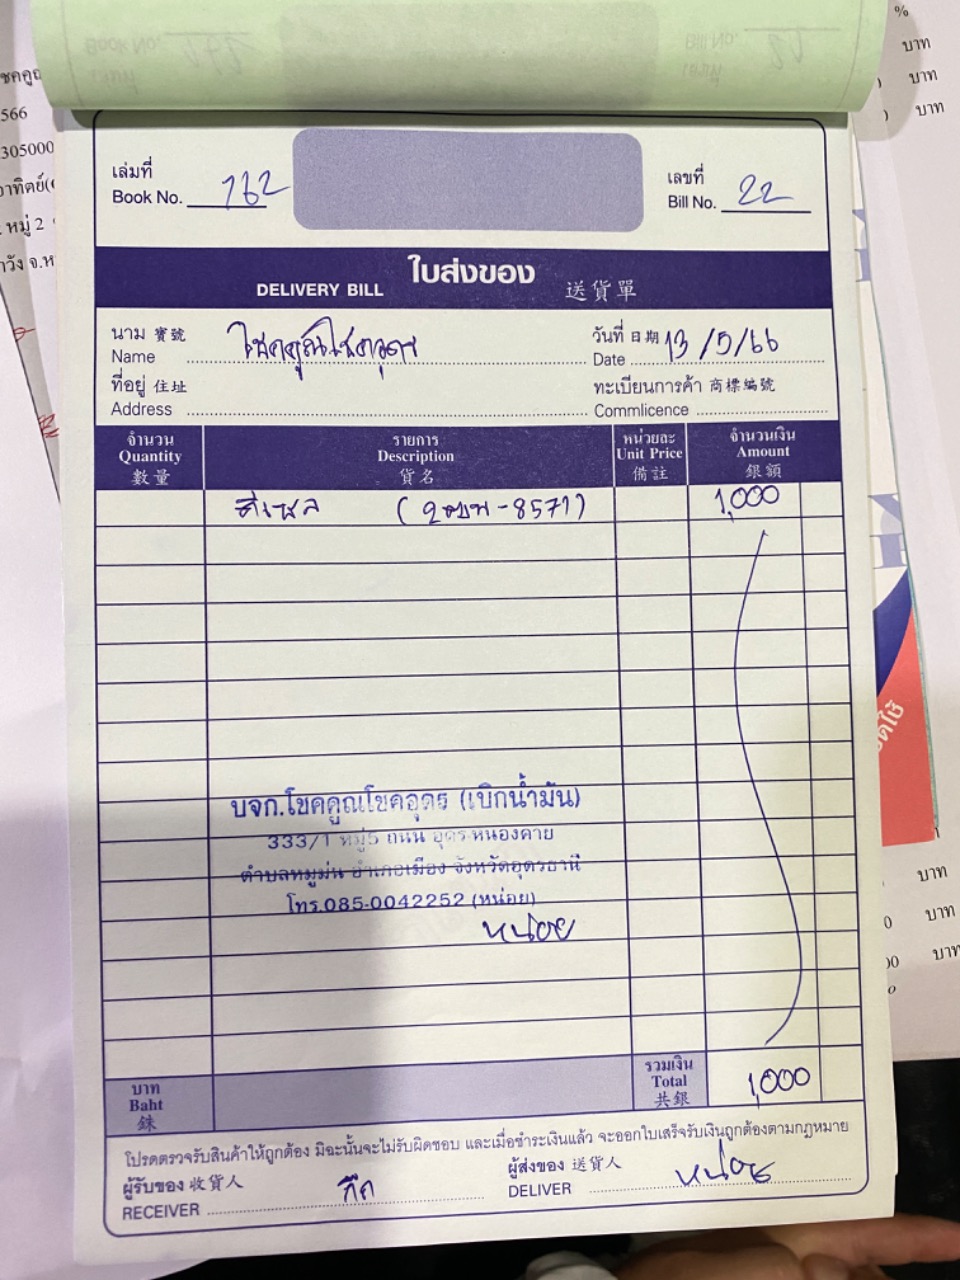 เล่มที่
Book No. 762
เลขที่
Bill No. 22
ใบส่งของ
DELIVERY BILL 送貨單
นาม 寶號
Name โชคคูณโชคอุดร
วันที่ 日期
Date 13/5/66
ที่อยู่ 住址
Address
ทะเบียนการค้า 商標編號
Commlicence
จำนวน
Quantity
數量
รายการ
Description
貨名
หน่วยละ
Unit Price
備註
จำนวนเงิน
Amount
銀額
ดีเซล (2ฒบพ-8571) 1,000
บจก.โชคคูณโชคอุดร (เบิกน้ำมัน)
333/1 หมู่5 ถนน อุดร-หนองคาย
ตำบลหมูม่น อำเภอเมือง จังหวัดอุดรธานี
โทร.085-0042252 (หน่อย)
หน่อย
บาท
Baht
銖
รวมเงิน
Total
共銀
1,000
โปรดตรวจรับสินค้าให้ถูกต้อง มิฉะนั้นจะไม่รับผิดชอบ และเมื่อชำระเงินแล้ว จะออกใบเสร็จรับเงินถูกต้องตามกฎหมาย
ผู้รับของ 收貨人
RECEIVER
ผู้ส่งของ 送貨人
DELIVER หน่อย
%
บาท
บาท
บาท
566
305000
หมู่ 2
บาท
บาท
บาท